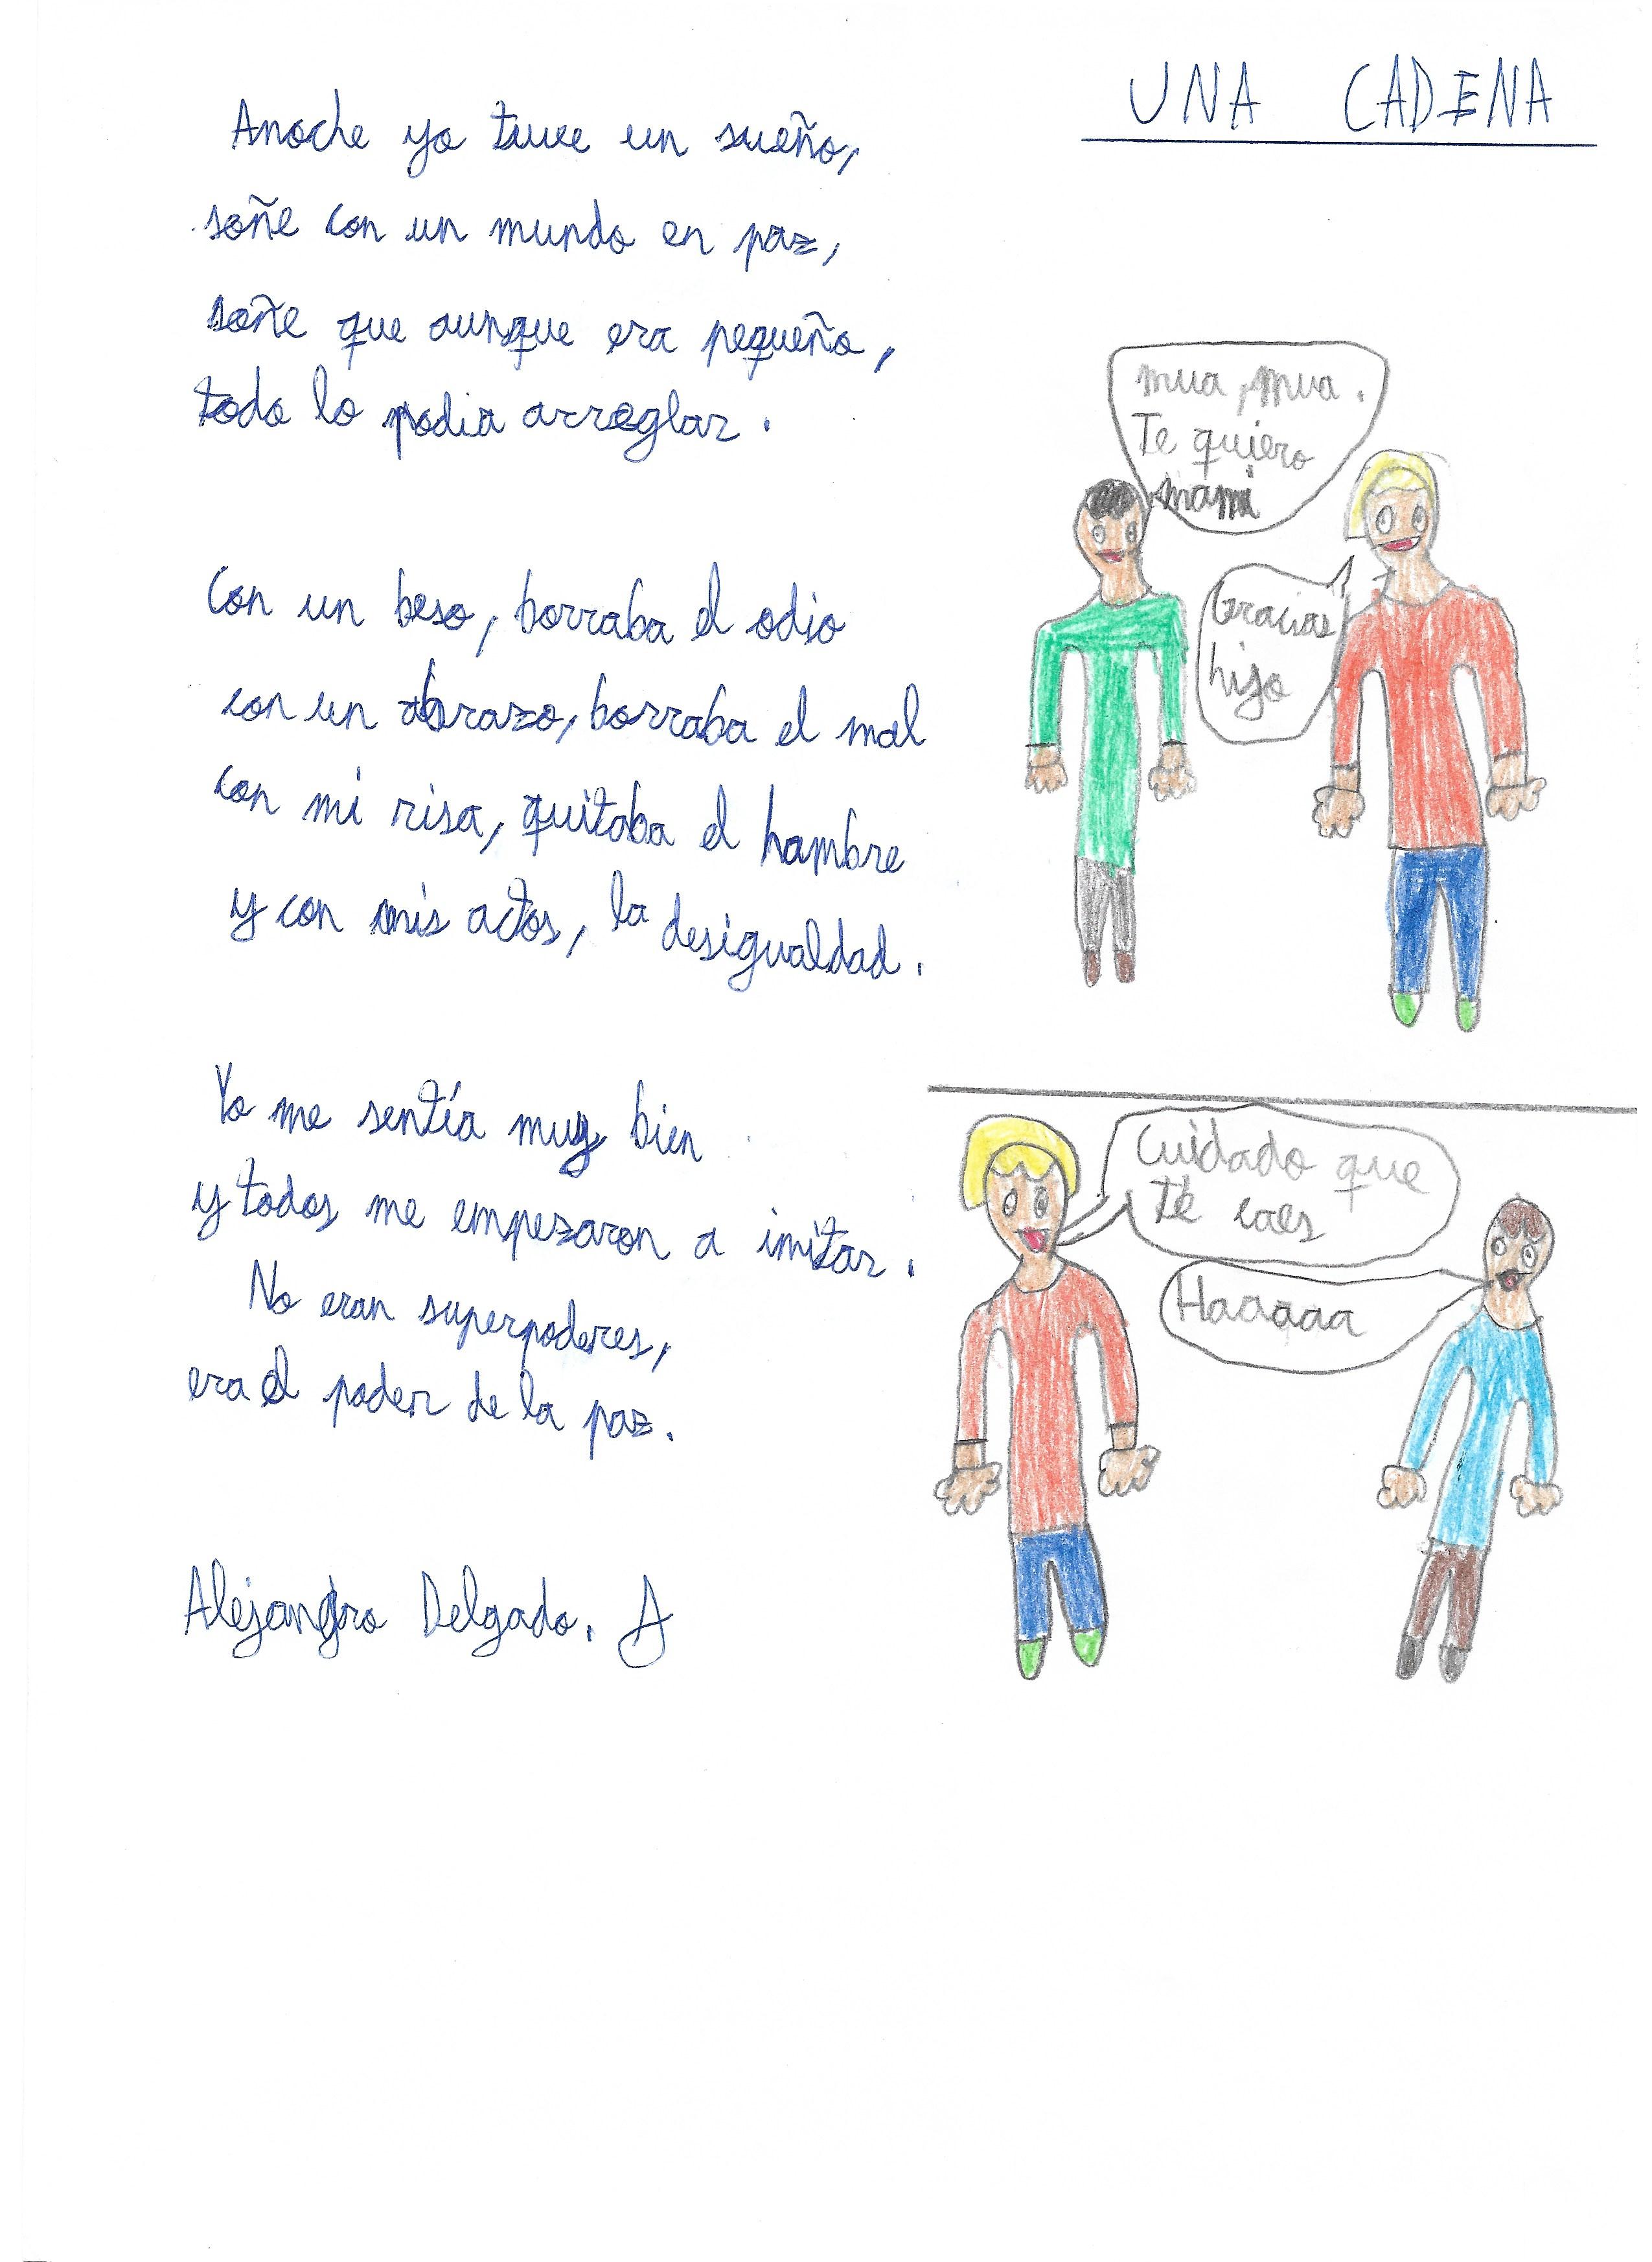 UNA CADENA
Anoche yo tuve un sueño,
soñe con un mundo en paz,
soñe que aunque era pequeño,
todo lo podia arreglar.
Con un beso, borraba el odio
con un abrazo, borraba el mal
con mi risa, quitaba el hambre
y con mis actos, la desigualdad.
Yo me sentía muy bien
y todos me empezaron a imitar.
No eran superpoderes,
era el poder de la paz.
Alejandro Delgado. A
mua, mua.
Te quiero
mami
Gracias
hijo
Cuidado que
te caes
Haaaaa